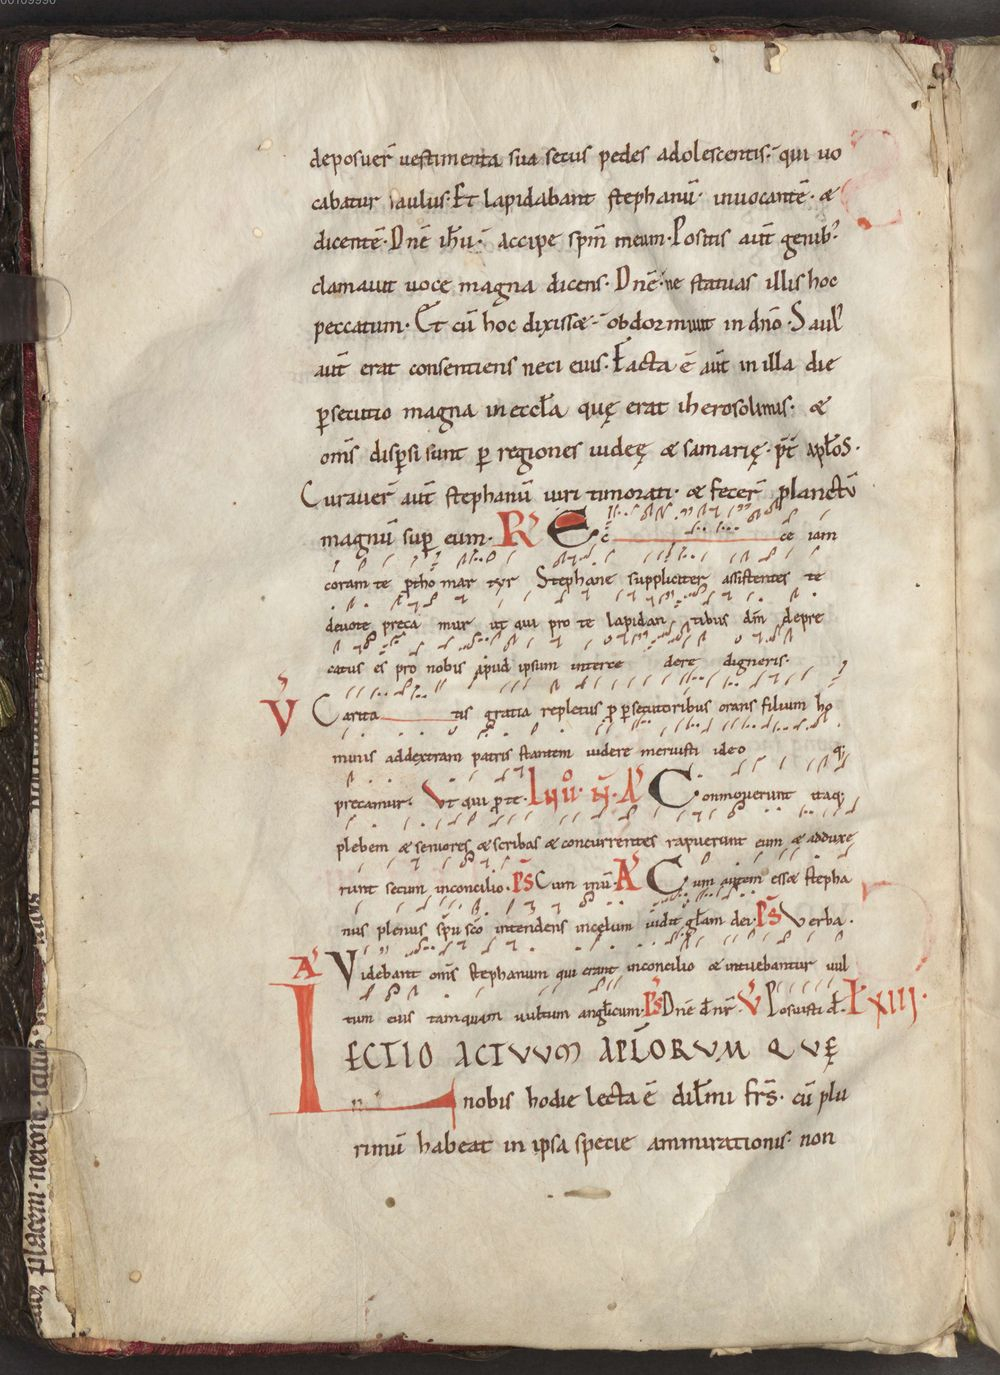 deposuer̄ uestimenta sua secus pedes adolescentis· qui uo
cabatur saulus· Et lapidabant stephanū· inuocantē· &
dicentē· Dn̄e ih̄u· accipe spm̄ meum· Positis aut̄ genib;
clamauit uoce magna dicens· Dn̄e ne statuas illis hoc
peccatum· Et cū hoc dixiss&· obdormiuit in dn̄o· Saul'
aut̄ erat consentiens neci eius· Facta ē aut̄ in illa die
p̱secutio magna in eccl̄a quę erat iherosolimis· &
om̄s disp̱si sunt p̱ regiones iudeę & samarię· p̄t apl̄os·
Curauer̄ aut̄ stephanū uiri timorati· & fecer̄ planctū
magnū sup̱ eum· R' Ec ce iam
coram te protho mar tyr Stephane suppliciter assistentes te
deuote preca mur ut qui pro te lapidan tibus dn̄m depre
catus es pro nobis apud ipsum interce dere digneris·
V' Carita tis gratia repletus pro p̱secutoribus orans filium ho
minis addextram patris stantem uidere meruisti ideo q;
precamur· Vt qui pro te· A' Conmouerunt itaq;
plebem & seniores & scribas & concurrentes rapuerunt eum & adduxe
runt secum inconcilio· Ps̄ Cum inū A' Cum autem ess& stepha
nus plenus spū sc̄o intendens incelum uidit gl̄am dei· Ps̄ Verba·
A' Videbant om̄s stephanum qui erant inconcilio & intuebantur uul
tum eius tamquam uultum angl̄icum· Ps̄ Dn̄e d̄ nr̄· V' Posuisti d̄· L' XIII·
LECTIO ACTVVM APL̄ORVM QVĘ
nobis hodie lecta ē dil̄mi frs̄· cū plu
rimū habeat in ipsa specie ammirationis· non